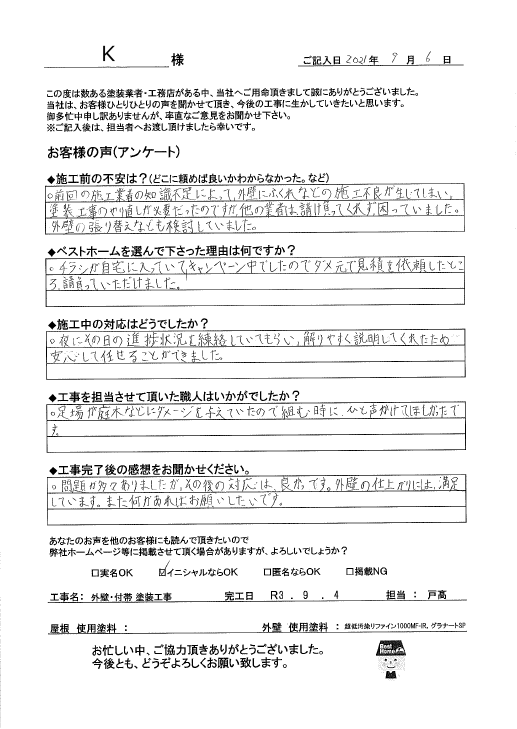 K 様 ご記入日 2021年 9月 6日
この度は数ある塗装業者・工務店がある中、当社へご用命頂きまして誠にありがとうございました。
当社は、お客様ひとりひとりの声を聞かせて頂き、今後の工事に生かしていきたいと思います。
御多忙中申し訳ありませんが、率直なご意見をお聞かせ下さい。
※ご記入後は、担当者へお渡し頂けましたら幸いです。
お客様の声(アンケート)
◆施工前の不安は？(どこに頼めば良いかわからなかった。など)
○前回の施工業者の知識不足によって、外壁にふくれなどの施工不良が生じてしまい、
塗装工事のやり直しが必要だったのですが、他の業者は請け負ってくれず困っていました。
外壁の張り替えなども検討していました。
◆ベストホームを選んで下さった理由は何ですか？
○チラシが自宅に入っていてキャンペーン中でしたのでダメ元で見積を依頼したとこ
ろ、請負っていただけました。
◆施工中の対応はどうでしたか？
○夜にその日の進捗状況を練絡していてもらい、解りやすく説明してくれたため
安心して任せることができました。
◆工事を担当させて頂いた職人はいかがでしたか？
○足場が庭木などにダメージを与えていたので組む時に、ひと声かけてほしかったで
す。
◆工事完了後の感想をお聞かせください。
○問題が多々ありましたが、その後の対応は、良かっです。外壁の仕上がりには、満足
しています。また何かあればお願いしたいです。
あなたのお声を他のお客様にも読んで頂きたいので
弊社ホームページ等に掲載させて頂く場合がありますが、よろしいでしょうか？
□実名OK ☑イニシャルならOK □匿名ならOK □掲載NG
工事名： 外壁・付帯 塗装工事 完工日 R3 . 9 . 4 担当 : 戸高
屋根 使用塗料 : 外壁 使用塗料 : 超低汚染リファイン1000MF-IR、グラナートSP
お忙しい中、ご協力頂きありがとうございました。
今後とも、どうぞよろしくお願い致します。
Best Home